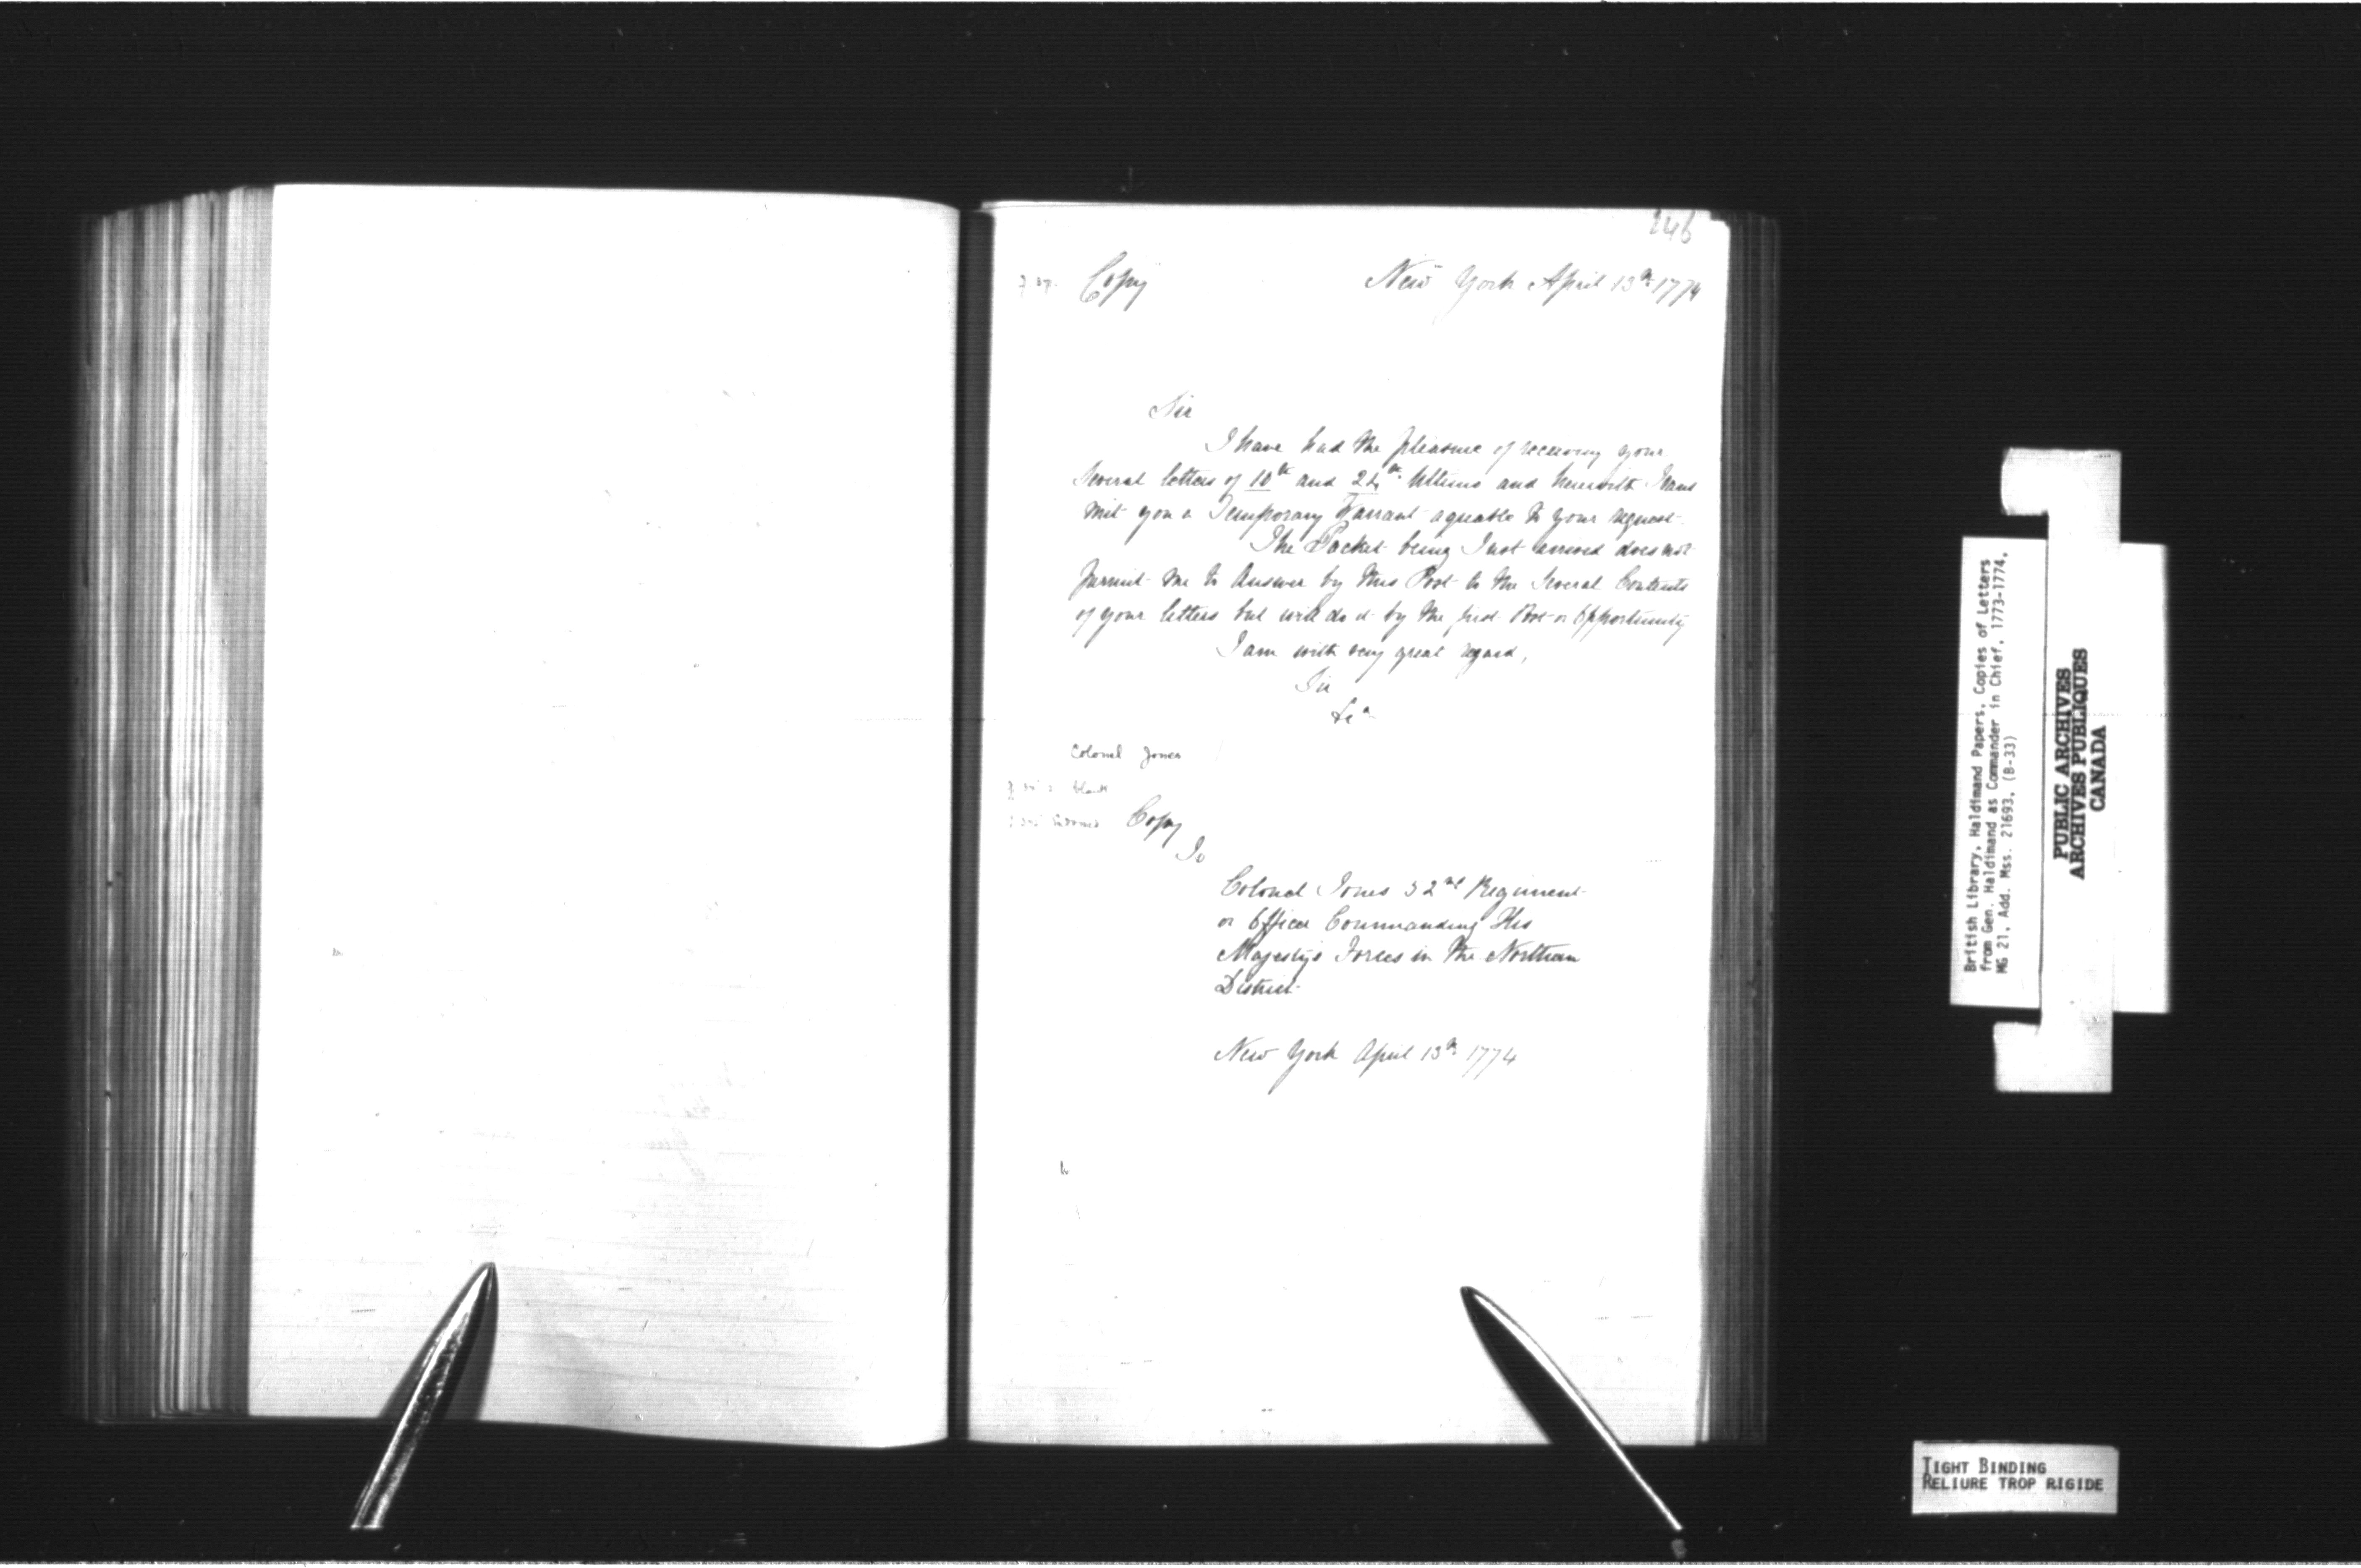 246
Copy
New York April 13th 1774
Sir
I have had the pleasure of receiving your
Several letters of 10th and 24th Ultimo and herewith Trans
mit you a Temporary Warrant agreable to your request
The Packet being Just arrived does not
permit me to Answer by this Post to the Several Contents
of your letters but will do it by the first Post or Opportunity
I am with very great regard,
Sir
&ca
Colonel Jones
blank
Copy
To
Colonel Jones 52nd Regiment
or Officer Commanding His
Majesty's Forces in the Northern
District
New York April 13th 1774
British Library, Haldimand Papers, Copies of Letters
from Gen. Haldimand as Commander in Chief, 1773-1774,
MG 21, Add. Mss. 21693, (B-33)
PUBLIC ARCHIVES
ARCHIVES PUBLIQUES
CANADA
TIGHT BINDING
RELIURE TROP RIGIDE